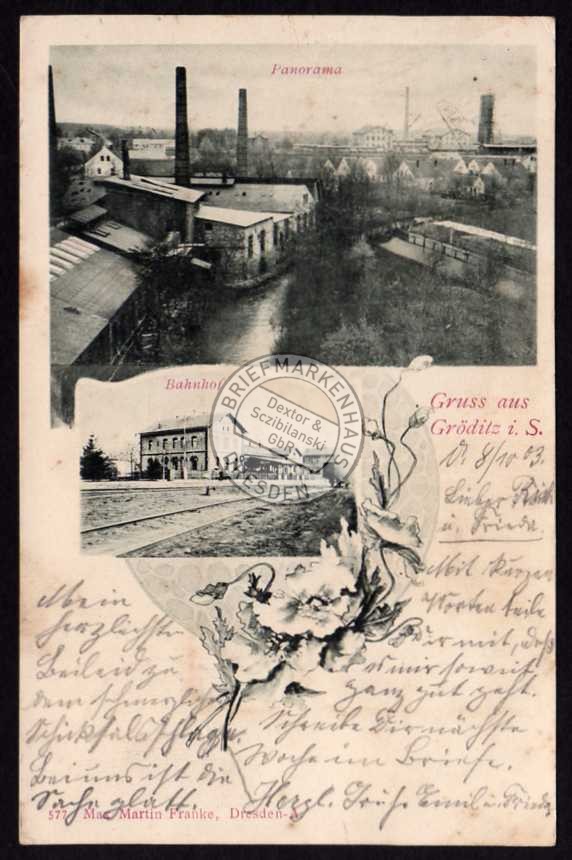 Panorama
Bahnhof
BRIEFMARKENHAUS
Dextor &
Sczibilanski
GbR
DRESDEN
Gruss aus
Gröditz i. S.
D. 8/10 03.
Lieber
u. Frieda.
Mit kurzen
Worten teile
Dir mit, daß
es mir soweit
ganz gut geht.
Schreibe Dir nächste
Woche im Briefe.
Herzl. Grüße Emil u. Frieda
Mein
herzlichstes
Beileid zu
dem schmerzlichen
Schicksalsschlage.
Bei uns ist die
Sache glatt.
577 Max Martin Franke, Dresden-A.